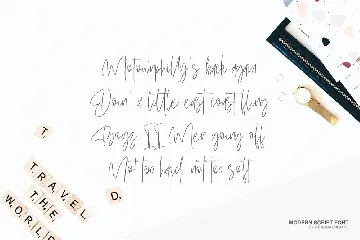 Motownphilly's back again
Doin' a little east coast
Boys II Men going off
Not too hard not too soft
T
TRAVEL
THE
WORL
D
MODERN SCRIPT FONT